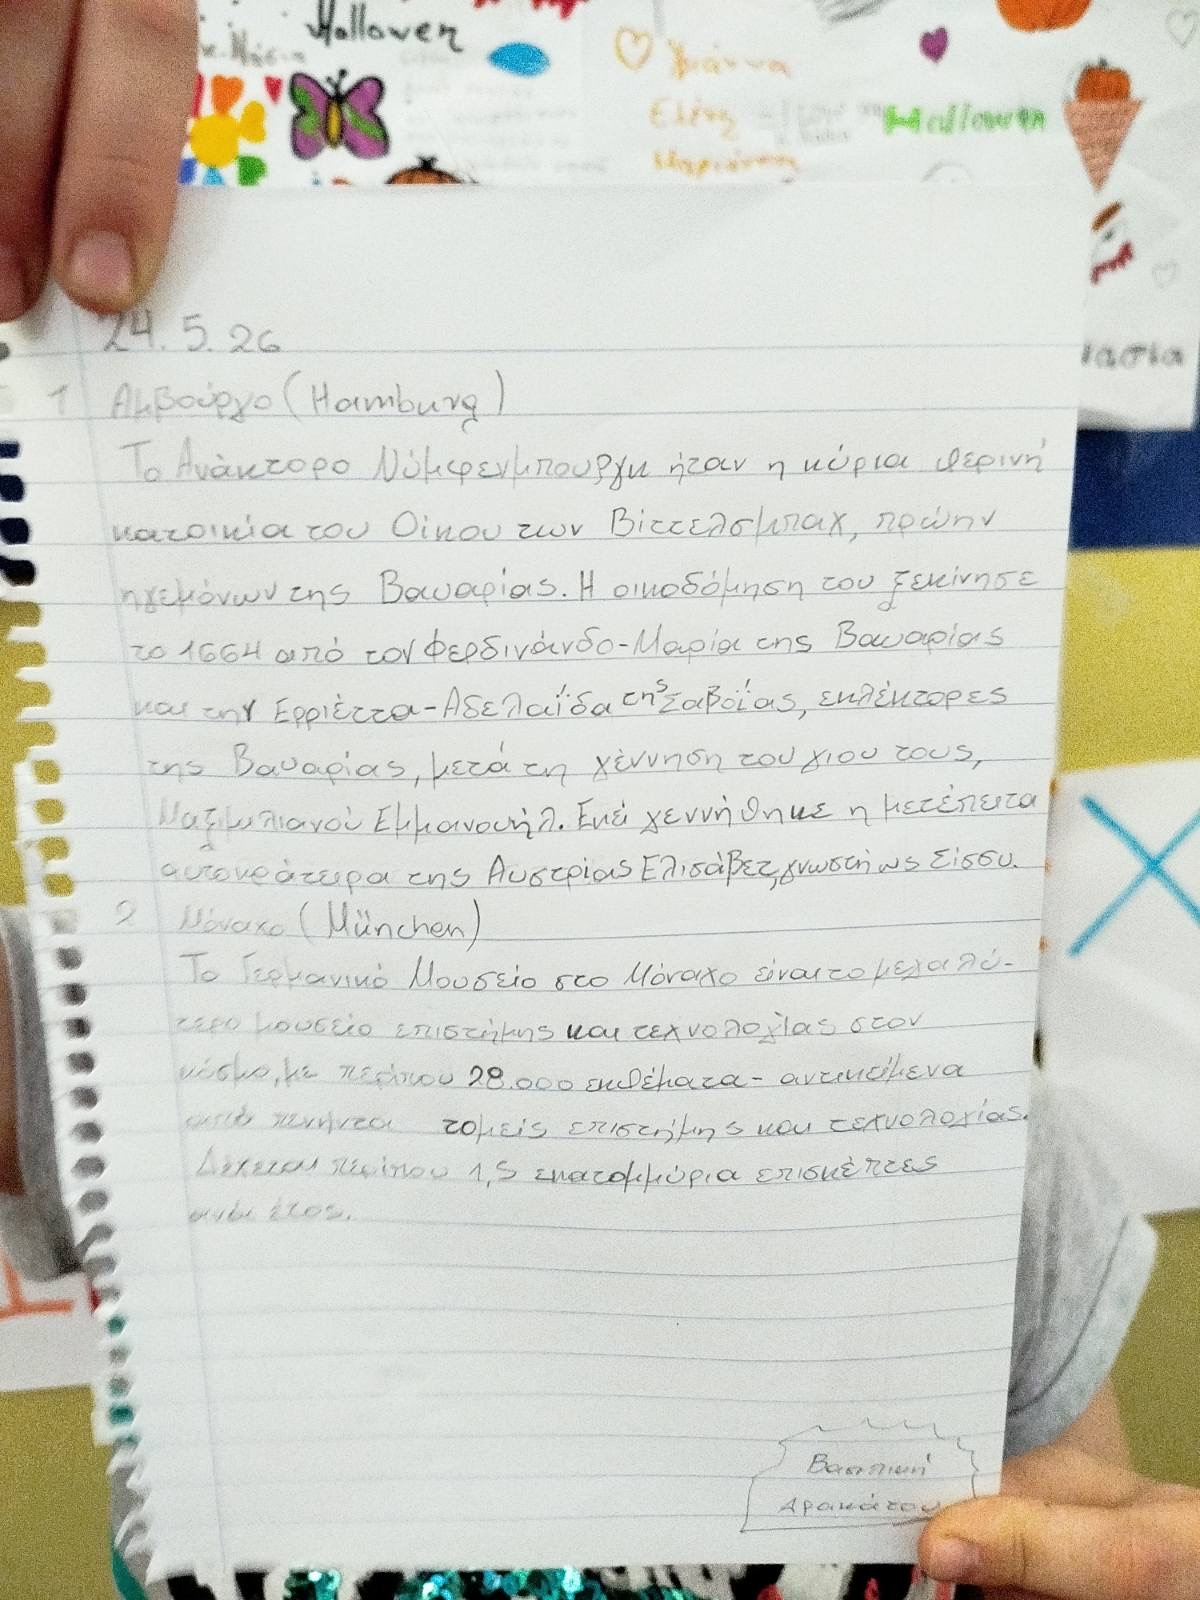 Hallowen
Γιάννα
Ελένη
Μαριάννα
Hallowen
νασία
24.5.26
1 Αμβούργο (Hamburg)
Το Ανάκτορο Νύμφενμπουργκ ήταν η κύρια θερινή
κατοικία του Οίκου των Βίττελσμπαχ, πρώην
ηγεμόνων της Βαυαρίας. Η οικοδόμηση του ξεκίνησε
το 1664 από τον Φερδινάνδο-Μαρία της Βαυαρίας
και την Ερριέττα-Αδελαΐδα της Σαβοΐας, εκλέκτορες
της Βαυαρίας, μετά τη γέννηση του γιου τους,
Μαξιμιλιανού Εμμανουήλ. Εκεί γεννήθηκε η μετέπειτα
αυτοκράτειρα της Αυστρίας Ελισάβετ, γνωστή ως Σίσσυ.
2 Μόναχο (München)
Το Γερμανικό Μουσείο στο Μόναχο είναι το μεγαλύ-
τερο μουσείο επιστήμης και τεχνολογίας στον
κόσμο, με περίπου 28.000 εκθέματα - αντικείμενα
από πενήντα τομείς επιστήμης και τεχνολογίας.
Δέχεται περίπου 1,5 εκατομμύρια επισκέπτες
ανά έτος.
Βασιλική
Δρακάτου